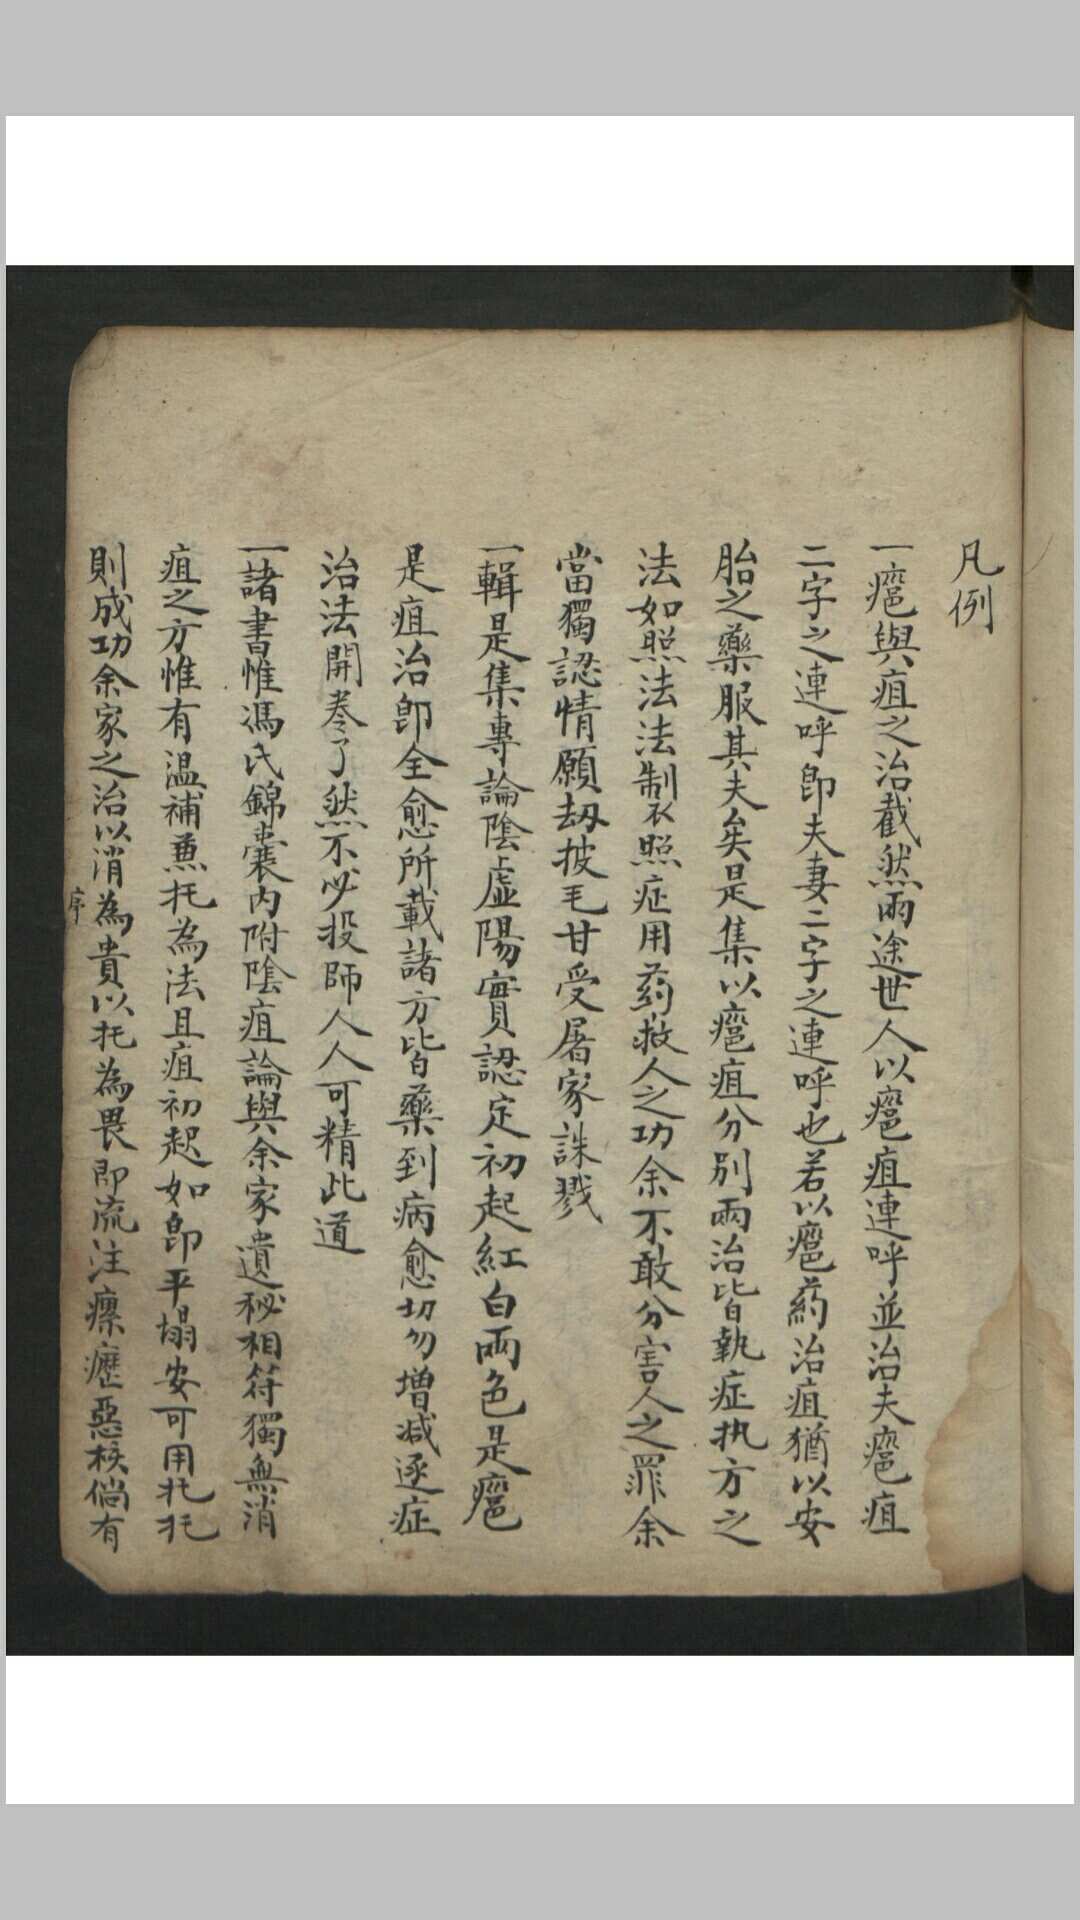 凡例
一癰與疽之治截然兩途世人以癰疽連呼並治夫癰疽
二字之連呼卽夫妻二字之連呼也若以癰药治疽猶以安
胎之藥服其夫矣是集以癰疽分別兩治皆執症执方之
法如照法法制不照症用药救人之功余不敢分害人之罪余
當獨認情願劫披毛甘受屠家誅戮
一輯是集專論陰虛陽實認定初起紅白兩色是癰
是疽治卽全愈所載諸方皆藥到病愈切勿增减逐症
治法開卷了然不必投師人人可精此道
一諸書惟馮氏錦囊内附陰疽論與余家遺秘相符獨無消
疽之方惟有温補兼托為法且疽初起如卽平塌安可用托托
則成功余家之治以消為貴以托為畏即流注瘰癧惡核倘有
序